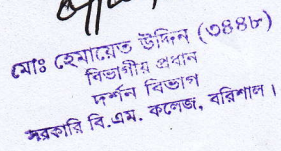 মোঃ হেমায়েত উদ্দিন (৩৪৪৮)
বিভাগীয় প্রধান
দর্শন বিভাগ
সরকারি বি.এম. কলেজ, বরিশাল।